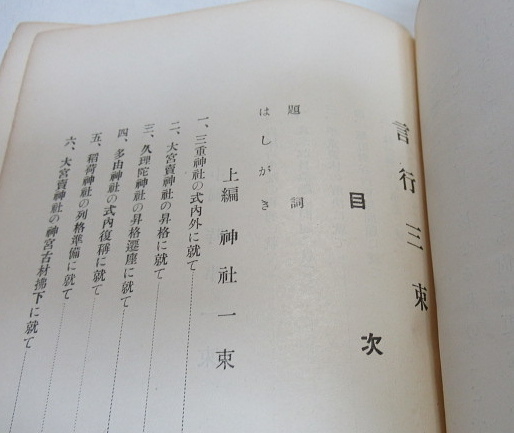 言行三束
目次
題詞
はしがき
上編 神社一束
一、三重神社の式内外に就て
二、大宮賣神社の昇格に就て
三、久理陀神社の昇格遷座に就て
四、多由神社の式内復稱に就て
五、稻荷神社の列格準備に就て
六、大宮賣神社の神宮古材拂下に就て